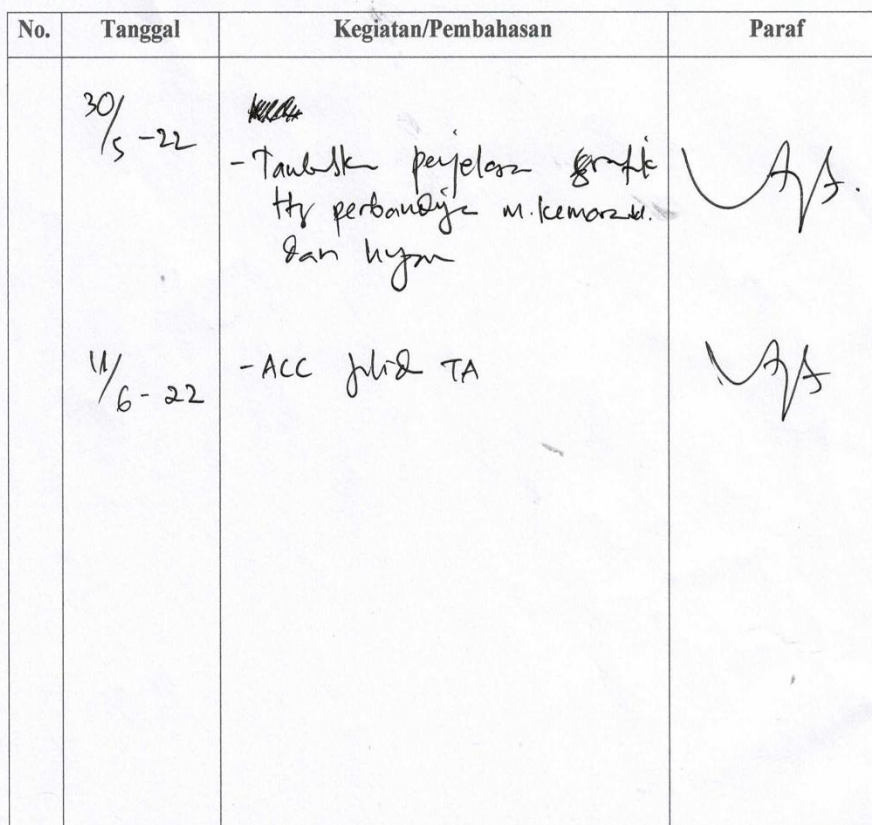 No. Tanggal Kegiatan/Pembahasan Paraf
30/5-22
- Tambahk penjelasan grafik
ttg perbandingan m. kemarau
dan hujan
11/6-22 - ACC jilid TA